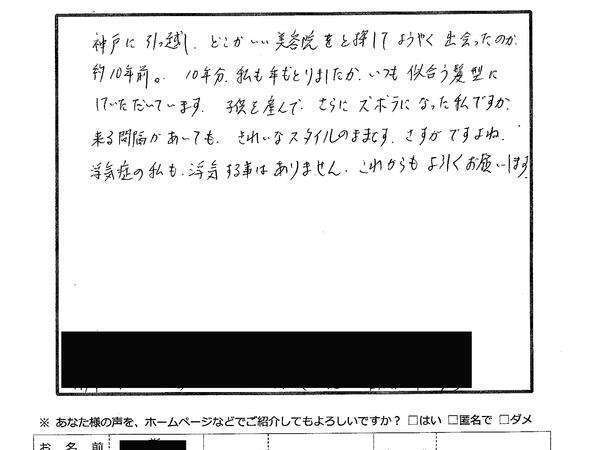 神戸に引っ越し、どこかいい美容院をと探してようやく出会ったのが
約10年前。10年分、私も年もとりましたが、いつも似合う髪型に
していただいています。子供を産んで、さらにズボラになった私ですが、
来る間隔があいても、きれいなスタイルのままです。さすがですよね。
浮気症の私も、浮気する事はありません。これからもよろしくお願いします。
※ あなた様の声を、ホームページなどでご紹介してもよろしいですか？ □はい □匿名で □ダメ
お 名 前